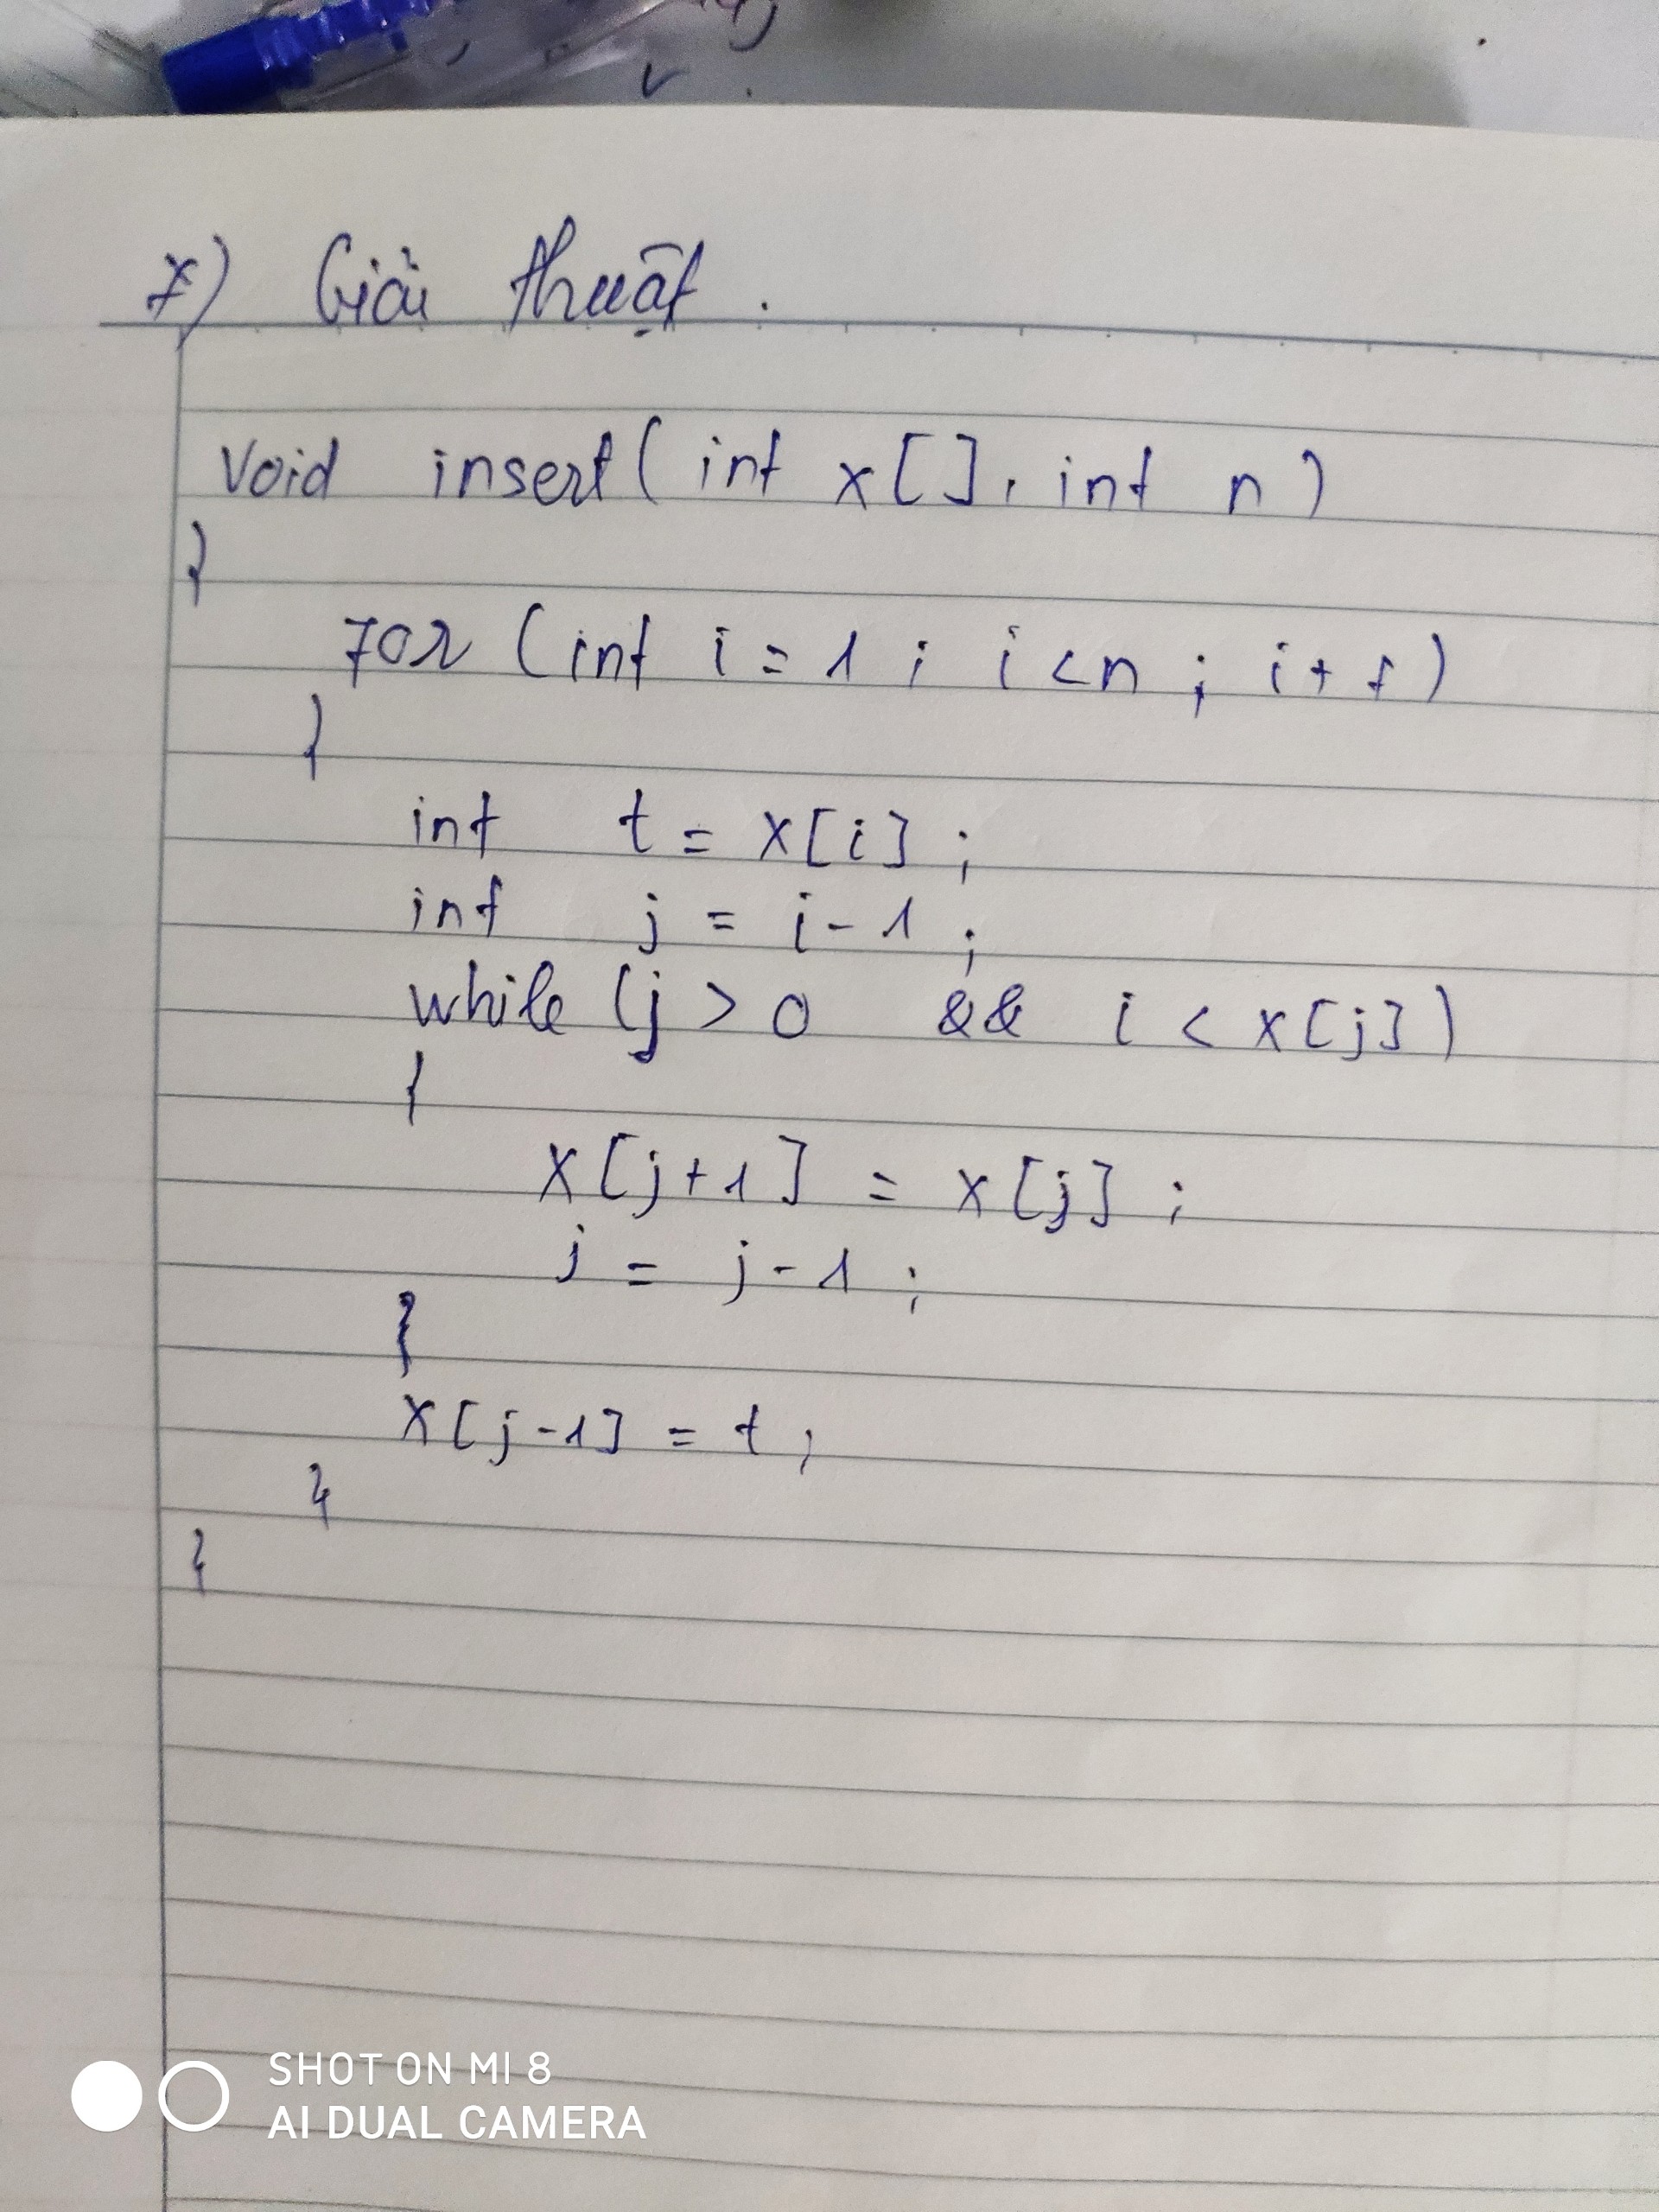 7) Giải thuật.
void insert( int x[], int n)
{
for (int i = 1 ; i < n ; i++)
{
int t = x[i] ;
int j = i - 1 ;
while (j > 0 && i < x[j])
{
x[j+1] = x[j] ;
j = j - 1 ;
}
x[j-1] = t ;
}
}
SHOT ON MI 8
AI DUAL CAMERA